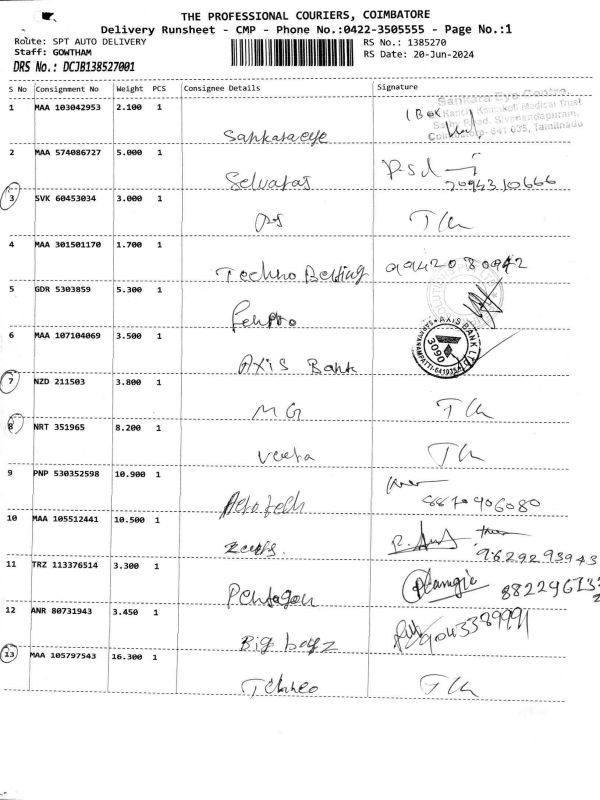 THE PROFESSIONAL COURIERS, COIMBATORE
Delivery Runsheet - CMP - Phone No.:0422-3505555 - Page No.:1
Route: SPT AUTO DELIVERY RS No.: 1385270
Staff: GOWTHAM RS Date: 20-Jun-2024
DRS No.: DCJB138527001
S No Consignment No Weight PCS Consignee Details Signature
1 MAA 103042953 2.100 1
Sankara Eye Centre,
Medical Trust
Road, Sivanandapuram,
641 035, Tamilnadu
Sankaraeye
2 MAA 574086727 5.000 1
Selvaras
3 SVK 60453034 3.000 1
4 MAA 301501170 1.700 1
Techno 9942080942
5 GDR 5303859 5.300 1
6 MAA 107104069 3.500 1
AXIS BANK LTD
3090
Axis Bank
7 NZD 211503 3.800 1
MG
8 NRT 351965 8.200 1
Veeta
9 PNP 530352598 10.900 1
8870906080
10 MAA 105512441 10.500 1
9629293943
11 TRZ 113376514 3.300 1
Pentagon
12 ANR 80731943 3.450 1
Big boyz 9043389991
13 MAA 105797543 16.300 1